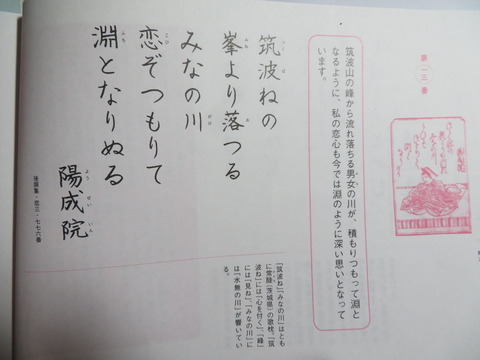 第一三番
筑波山の峰から流れ落ちる男女の川が、積もりつもって淵と
なるように、私の恋心も今では淵のように深い思いとなって
います。
筑波ねの
峯より落つる
みなの川
恋ぞつもりて
淵となりぬる
陽成院
後撰集・恋三・七七六番
「筑波ね」「みなの川」はとも
に常陸（茨城県）の歌枕。「筑
波ね」には「心を付く」、「峰」
には「見ね」、「みなの川」に
は「水無の川」が響いてい
る。